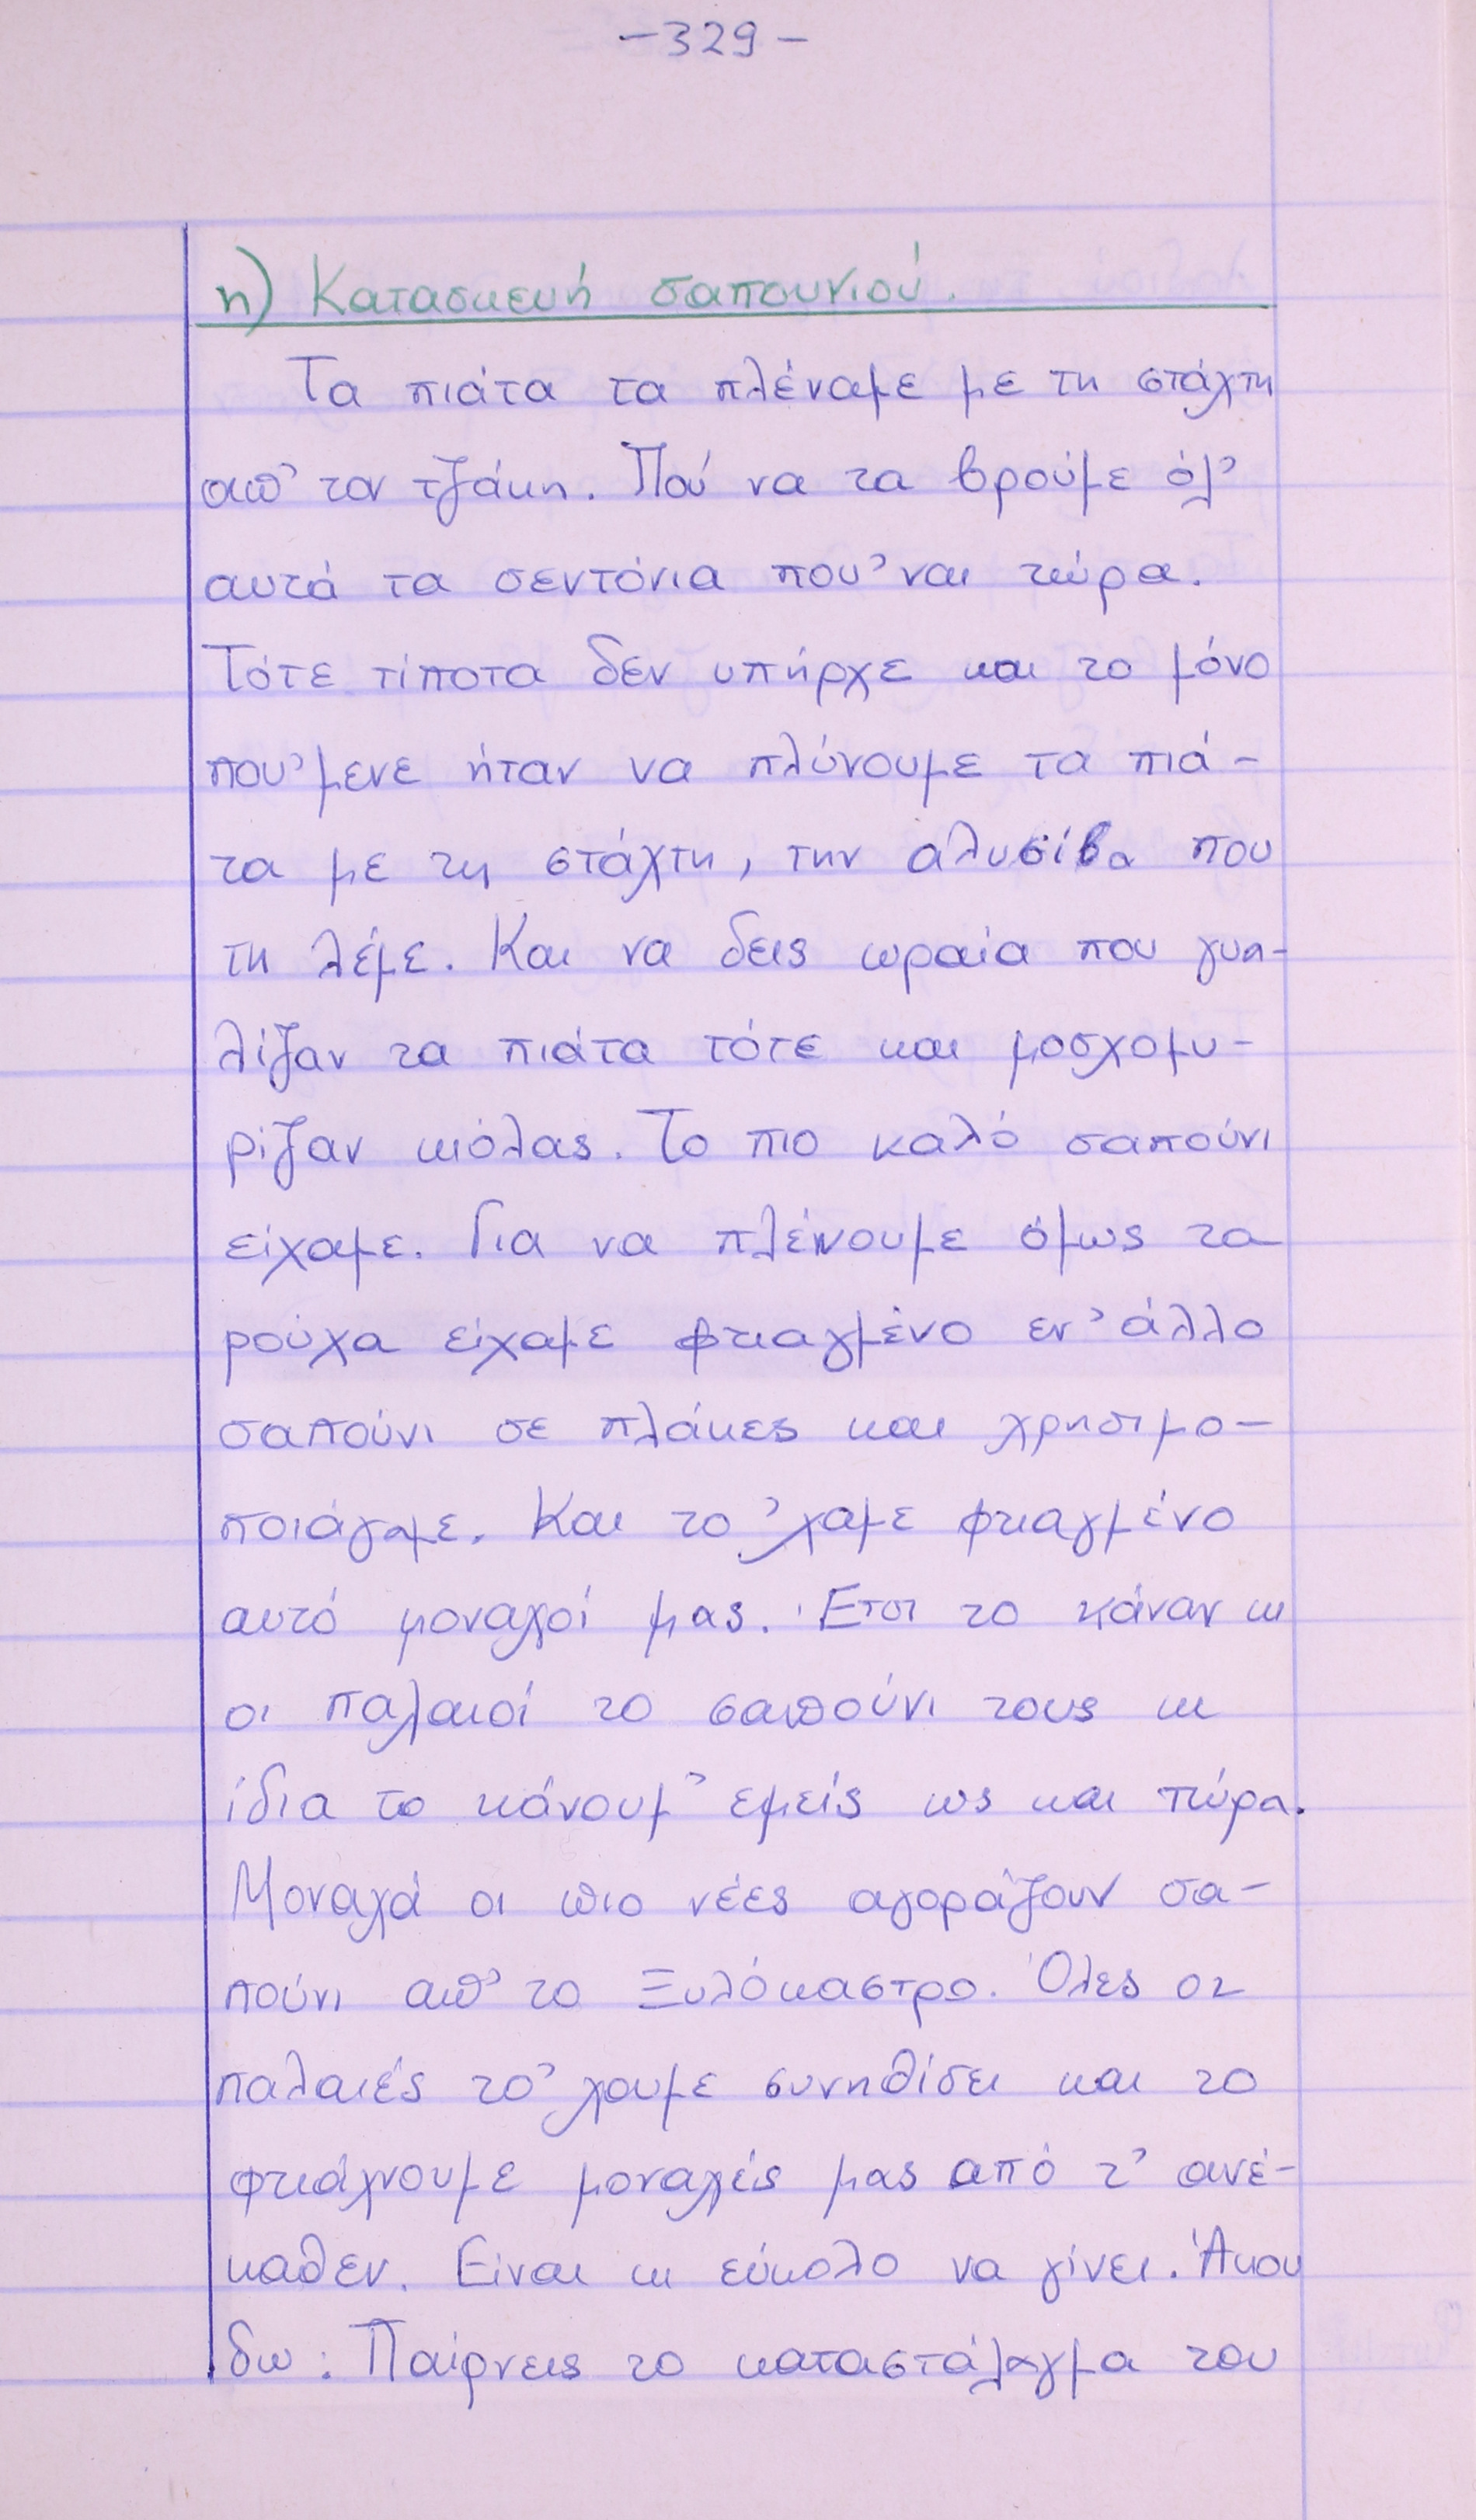 -329-
η) Κατασκευή σαπουνιού.
Τα πιάτα τα πλέναμε με τη στάχτη
απ' τον τζάκη. Πού να τα βρούμε όλ'
αυτά τα σεντόνια που 'ναι τώρα.
Τότε τίποτα δεν υπήρχε και το μόνο
που 'μενε ήταν να πλύνουμε τα πιά-
τα με τη στάχτη, την αλυσίβα που
τη λέμε. Και να δεις ωραία που γυα-
λίζαν τα πιάτα τότε και μοσχομυ-
ρίζαν κιόλας. Το πιο καλό σαπούνι
είχαμε. Για να πλένουμε όμως τα
ρούχα είχαμε φτιαγμένο εν' άλλο
σαπούνι σε πλάκες και χρησιμο-
ποιάγαμε. Και το 'χαμε φτιαγμένο
αυτό μοναχοί μας. Έτσι το κάναν κι
οι παλαιοί το σαπούνι τους κι
ίδια το κάνουμ' εμείς ως και τώρα.
Μοναχά οι πιο νέες αγοράζουν σα-
πούνι απ' το Ξυλόκαστρο. Όλες οι
παλαιές το 'χουμε συνηθίσει και το
φτιάχνουμε μοναχές μας από τ' ανέ-
καθεν. Είναι κι εύκολο να γίνει. Άκου
δω: Παίρνεις το καταστάλαγμα του